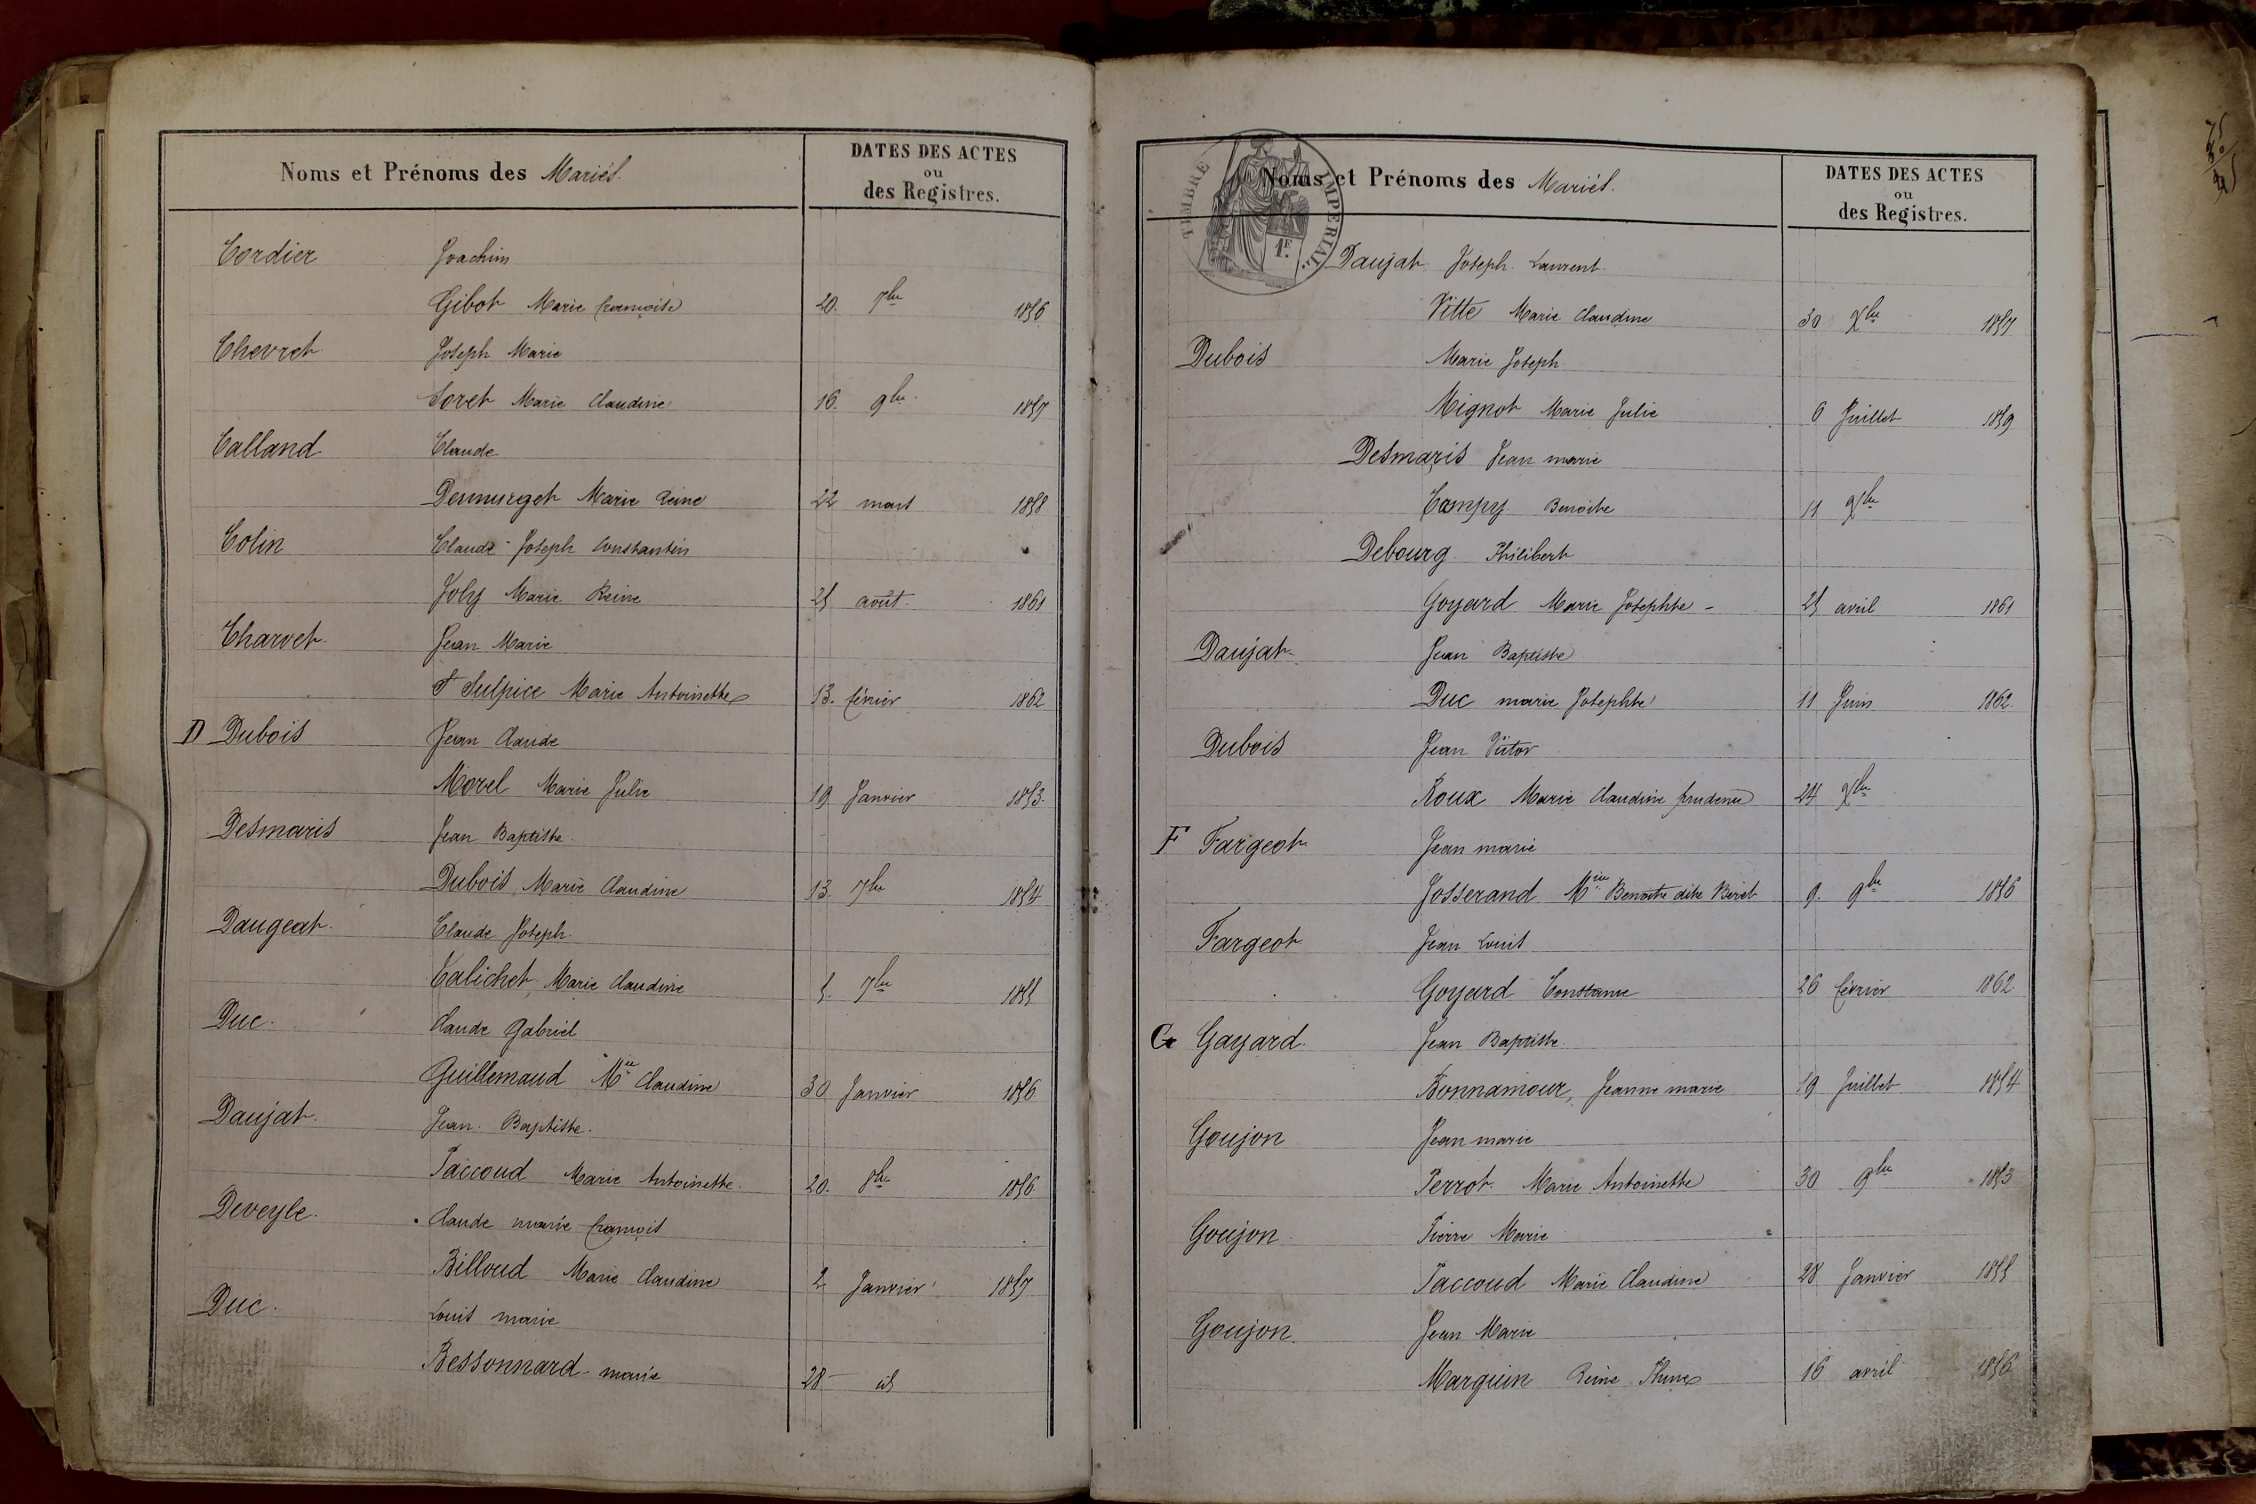 Noms et Prénoms des Mariés.
DATES DES ACTES
ou
des Registres.
Cordier Joachim
Gibot Marie françoise 20. 7bre 1856
Chevret Joseph Marie
Loret Marie Claudine 16. 9bre 1857
Calland Claude
Demurget Marie Reine 22 mars 1858
Colin Claude Joseph Constantin
Joly Marie Reine 25 août 1861
Charvet Jean Marie
St Sulpice Marie Antoinette 13. février 1862
D Dubois Jean Claude
Morel Marie Julie 19 Janvier 1853.
Desmaris Jean Baptiste
Dubois Marie Claudine 13. 7bre 1854
Daugeat Claude Joseph
Calichet Marie Claudine 5. 7bre 1855
Duc. Claude Gabriel
Guillemaud Mie Claudine 30 Janvier 1856
Daujat. Jean Baptiste.
Paccoud Marie Antoinette. 20. 8bre 1856
Deveyle. Claude marie françois
Billoud Marie Claudine 2 Janvier 1857
Duc. Louis marie
Bessonnard marie 28 id
Noms et Prénoms des Mariés.
DATES DES ACTES
ou
des Registres.
TIMBRE IMPERIAL
1F.
Daujat Joseph Laurent
Vitte Marie Claudine 30 Xbre 1857
Dubois Marie Joseph
Mignot Marie Julie 6 Juillet 1859
Desmaris Jean marie
Campy Benoite 11 Xbre
Debourg Philibert
Goyard Marie Josephte - 25 avril 1861
Daujat Jean Baptiste
Duc marie Josephte 11 Juin 1862.
Dubois Jean Victor
Roux Marie Claudine prudence 24 Xbre
F Fargeot Jean marie
Josserand Mie Benoite dite Beret 9. 9bre 1856
Fargeot Jean Louis
Goyard Constance 26 février 1862
G Gayard. Jean Baptiste
Bonnamour, Jeanne marie 19 Juillet 1854
Goujon Jean marie
Perrot Marie Antoinette 30 9bre 1853
Goujon Pierre Marie
Paccoud Marie Claudine 28 Janvier 1855
Goujon. Jean Marie
Marguin Reine 16 avril 1856